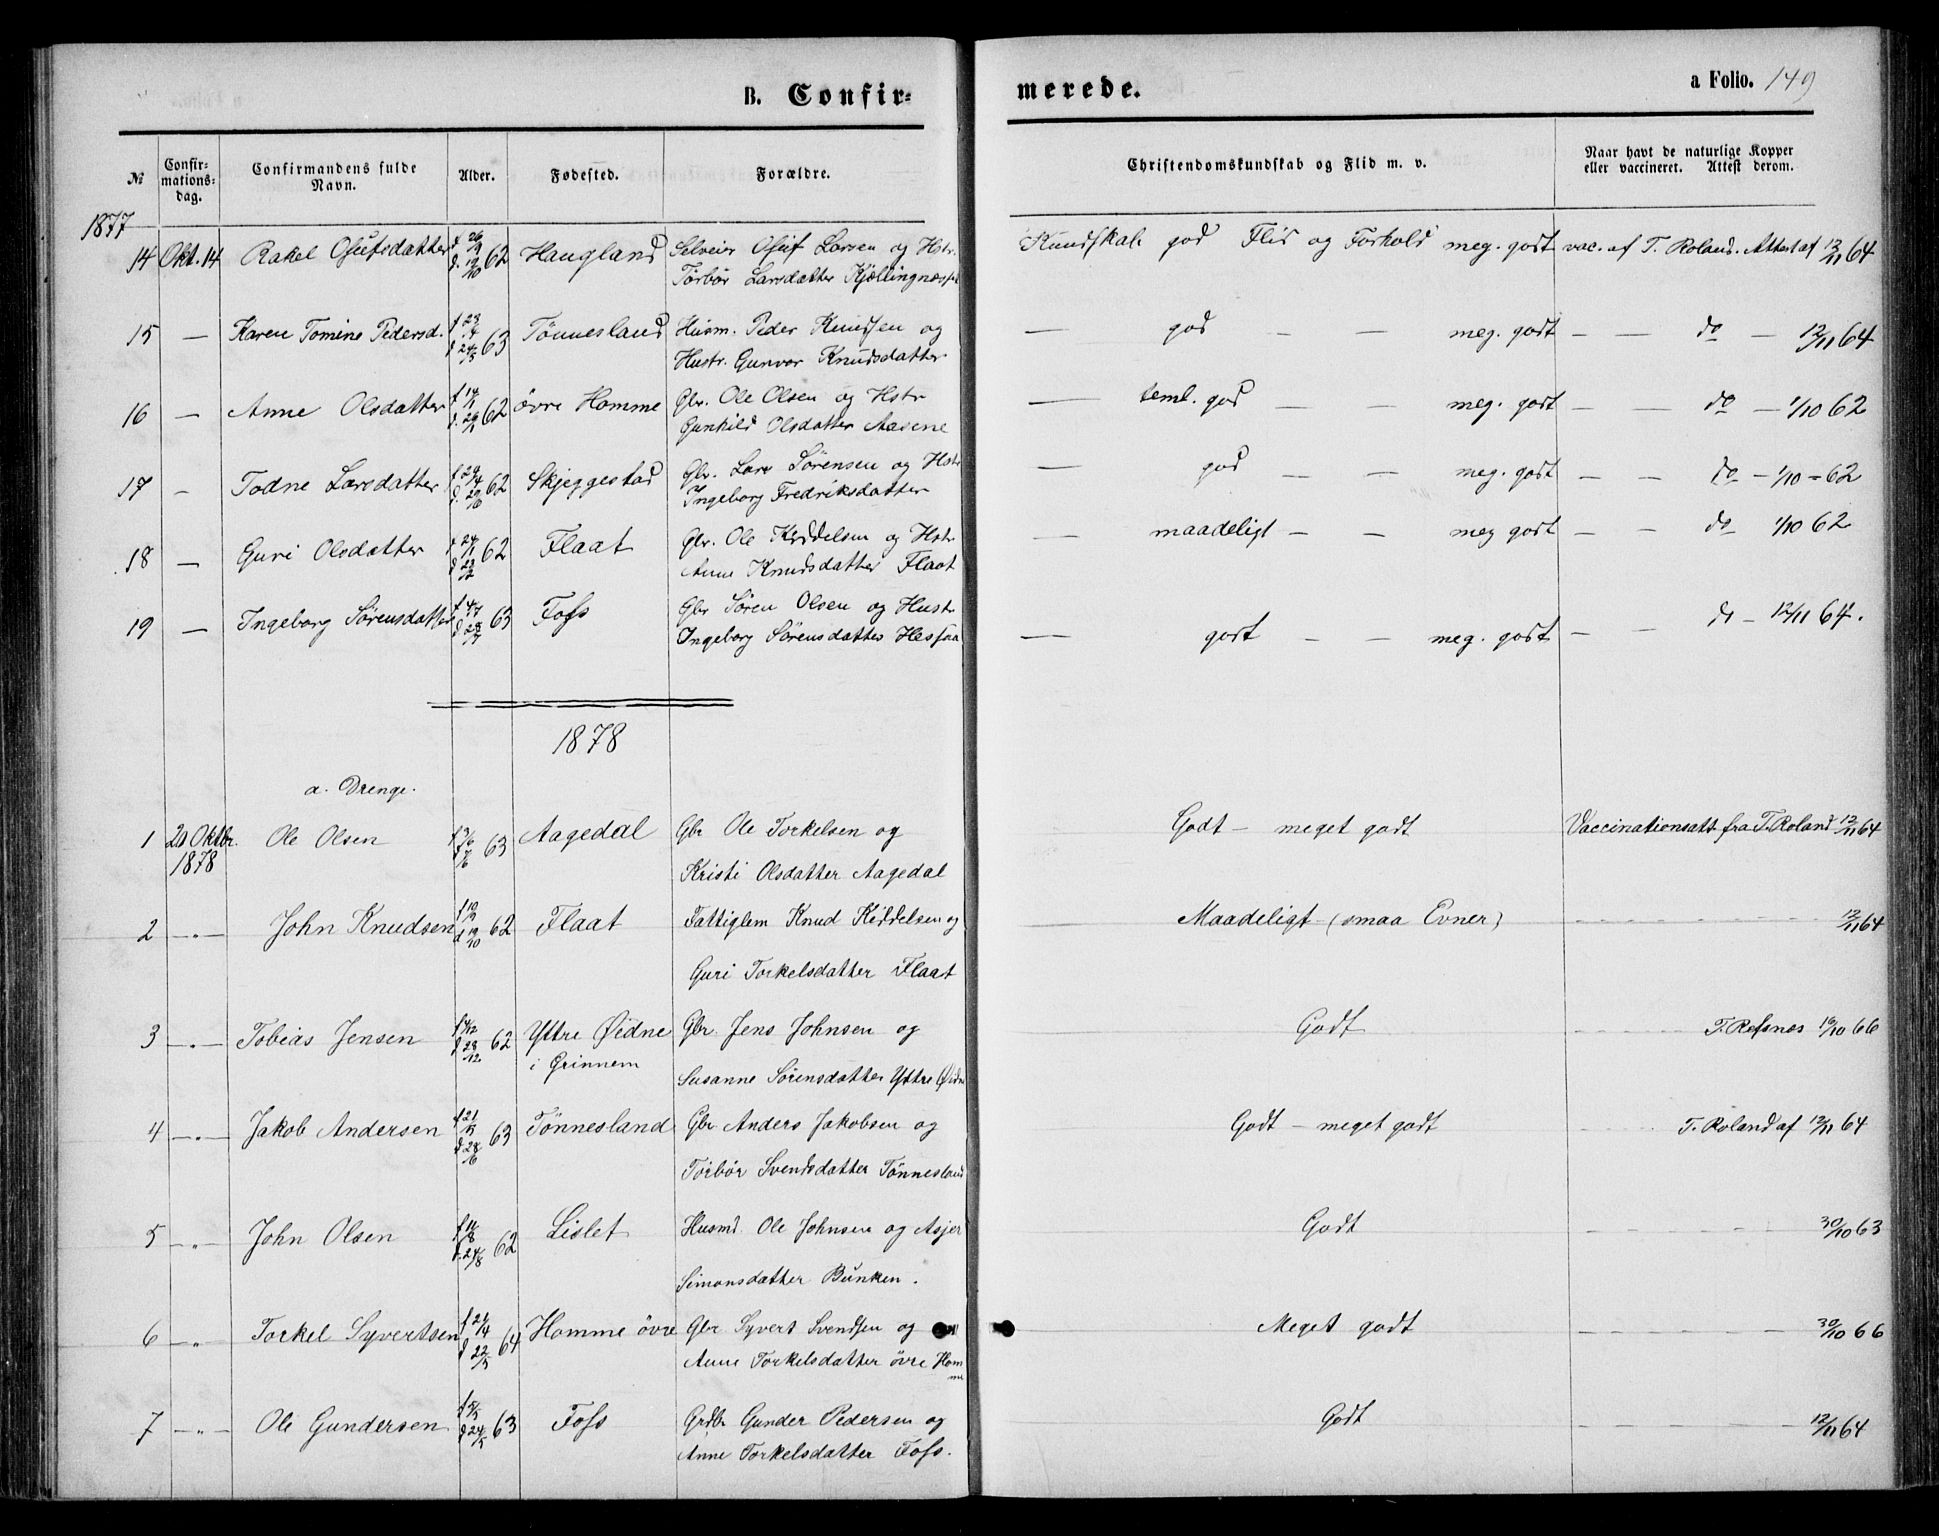 B. Confir-
merede.
a Folio. 149
№ Confir-mations-dag. Confirmandens fulde Navn. Alder. Fødested. Forældre. Christendomskundskab og Flid m. v. Naar havt de naturlige Kopper eller vaccineret. Attest derom.
1877
14 Okt. 14 Rakel Osufsdatter f 26/9 d. 19/10 62 Haugland Selveier Osuf Larsen og Hstr. Kundskab god Flid og Forhold meg. godt vac. af T. Roland. Attest af 12/11 64
Törbör Larsdatter Kjellingnæs
15 — Karen Tomine Pedersd. f 23/4 d 24/5 63 Tönnesland Husm. Peder Knudsen og — god — — meg. godt — — do — 12/11 64
Hustr. Gunvor Knudsdatter
16 — Anne Olsdatter f 14/1 d. 26/1 62 övre Homme Gbr. Ole Olsen og Hstr — teml. god — — meg. godt — — do — 1/10 62
Gunhild Olsdatter Aasene
17 — Todne Larsdatter f 24/4 d. 29/6 62 Skjeggestad Gbr. Lars Sörensen og Hstr — god — — meg. godt — — do — 1/10 — 62
Ingeborg Fredriksdatter
18 — Guri Olsdatter f 24/1 d 23/2 62 Flaat Gbr. Ole Kiddelsen og Hstr — maadeligt — — meg godt — — do 1/10 62
Anne Knudsdatter Flaat
19 — Ingeborg Sörensdatter f 4/7 d 28/7 63 Foss Gbr Sören Olsen og Hustr — godt — — meg. godt — — do — 12/11 64.
Ingeborg Sörensdatter Hesfaa
1878
a. Drenge.
1 20 Oktbr. 1878 Ole Olsen f 3/6 d 7/6 63 Aagedal Gbr Ole Torkelsen og Godt — meget godt Vaccinationsatt. fra T. Roland 12/11 64
Kristi Olsdatter Aagedal
2 —„— John Knudsen f 10/9 d 19/10 62 Flaat Fattiglem Knud Kiddelsen og Maadeligt (smaa Evner) 12/11 64
Guri Torkelsdatter Flaat
3 —„— Tobias Jensen f 4/12 d 28/12 62 Yttre Øidne Gbr. Jens Johnsen og Godt T. Refsnes 16/10 66
i Grinnem Susanne Sörensdatter Yttre Øidne
4 —„— Jakob Andersen f 21/5 d 28/6 63 Tönnesland Gbr Anders Jakobsen og Godt — meget godt T. Roland af 12/11 64
Törbör Svendsdatter Tönnesland
5 —„— John Olsen f 11/8 d. 24/8 62 Lislet Husmd. Ole Johnsen og Asjer Godt 30/10 63
Simonsdatter Bunken.
6 —„— Torkel Syvertsen f 21/4 d 22/5 64 Homme övre Gbr Syvert Svendsen og Meget godt 30/10 66
Anne Torkelsdatter övre Homme
7 —„— Ole Gundersen f 5/5 d 24/5 63 Foss Grdbr Gunder Pedersen og Godt 12/11 64
Anne Torkelsdatter Foss.